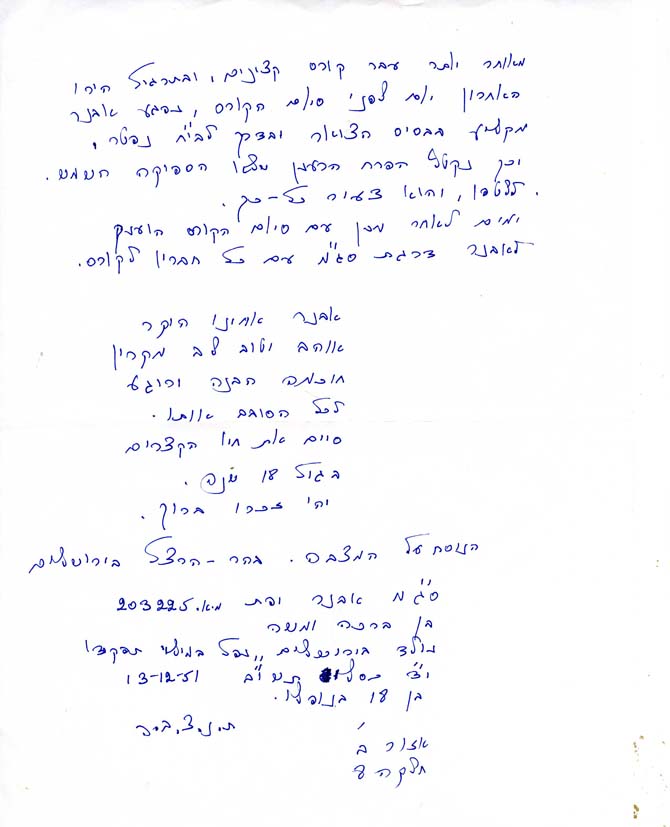 מאוחר יותר עבר קורס קצינים, ובתרגיל הירי
האחרון יום לפני סיום הקורס, נפגע אבנר
מקליע בבסיס הצוואר ובדרך לבי"ח נפטר,
וכך נקטל הפרח הרענן שלא הספיקה השמש.
לשטפו, והוא צעיר כל-כך.
ימים לאחר מכן עם סיום הקורס הוענק
לאבנר דרגת סג"מ עם כל חבריו לקורס.
אבנר אחינו היקר
אוהב וטוב לב מקרין
חוכמה הבנה ורוגע
לכל הסובב אותו.
סיים את חייו הקצרים
בגיל 18 שנה.
יהי זכרו ברוך.
הנוסח על המצבה. בהר-הרצל בירושלים
סג"מ אבנר יפת מ.א. 203225
בן ברכה ומשה
נולד בירושלים, נפל במילוי תפקידו
י"ד כסלו תשי"ב 13-12-51
בן 18 בנופלו.
ת.נ.צ.ב.ה
אזור ב'
חלקה 8